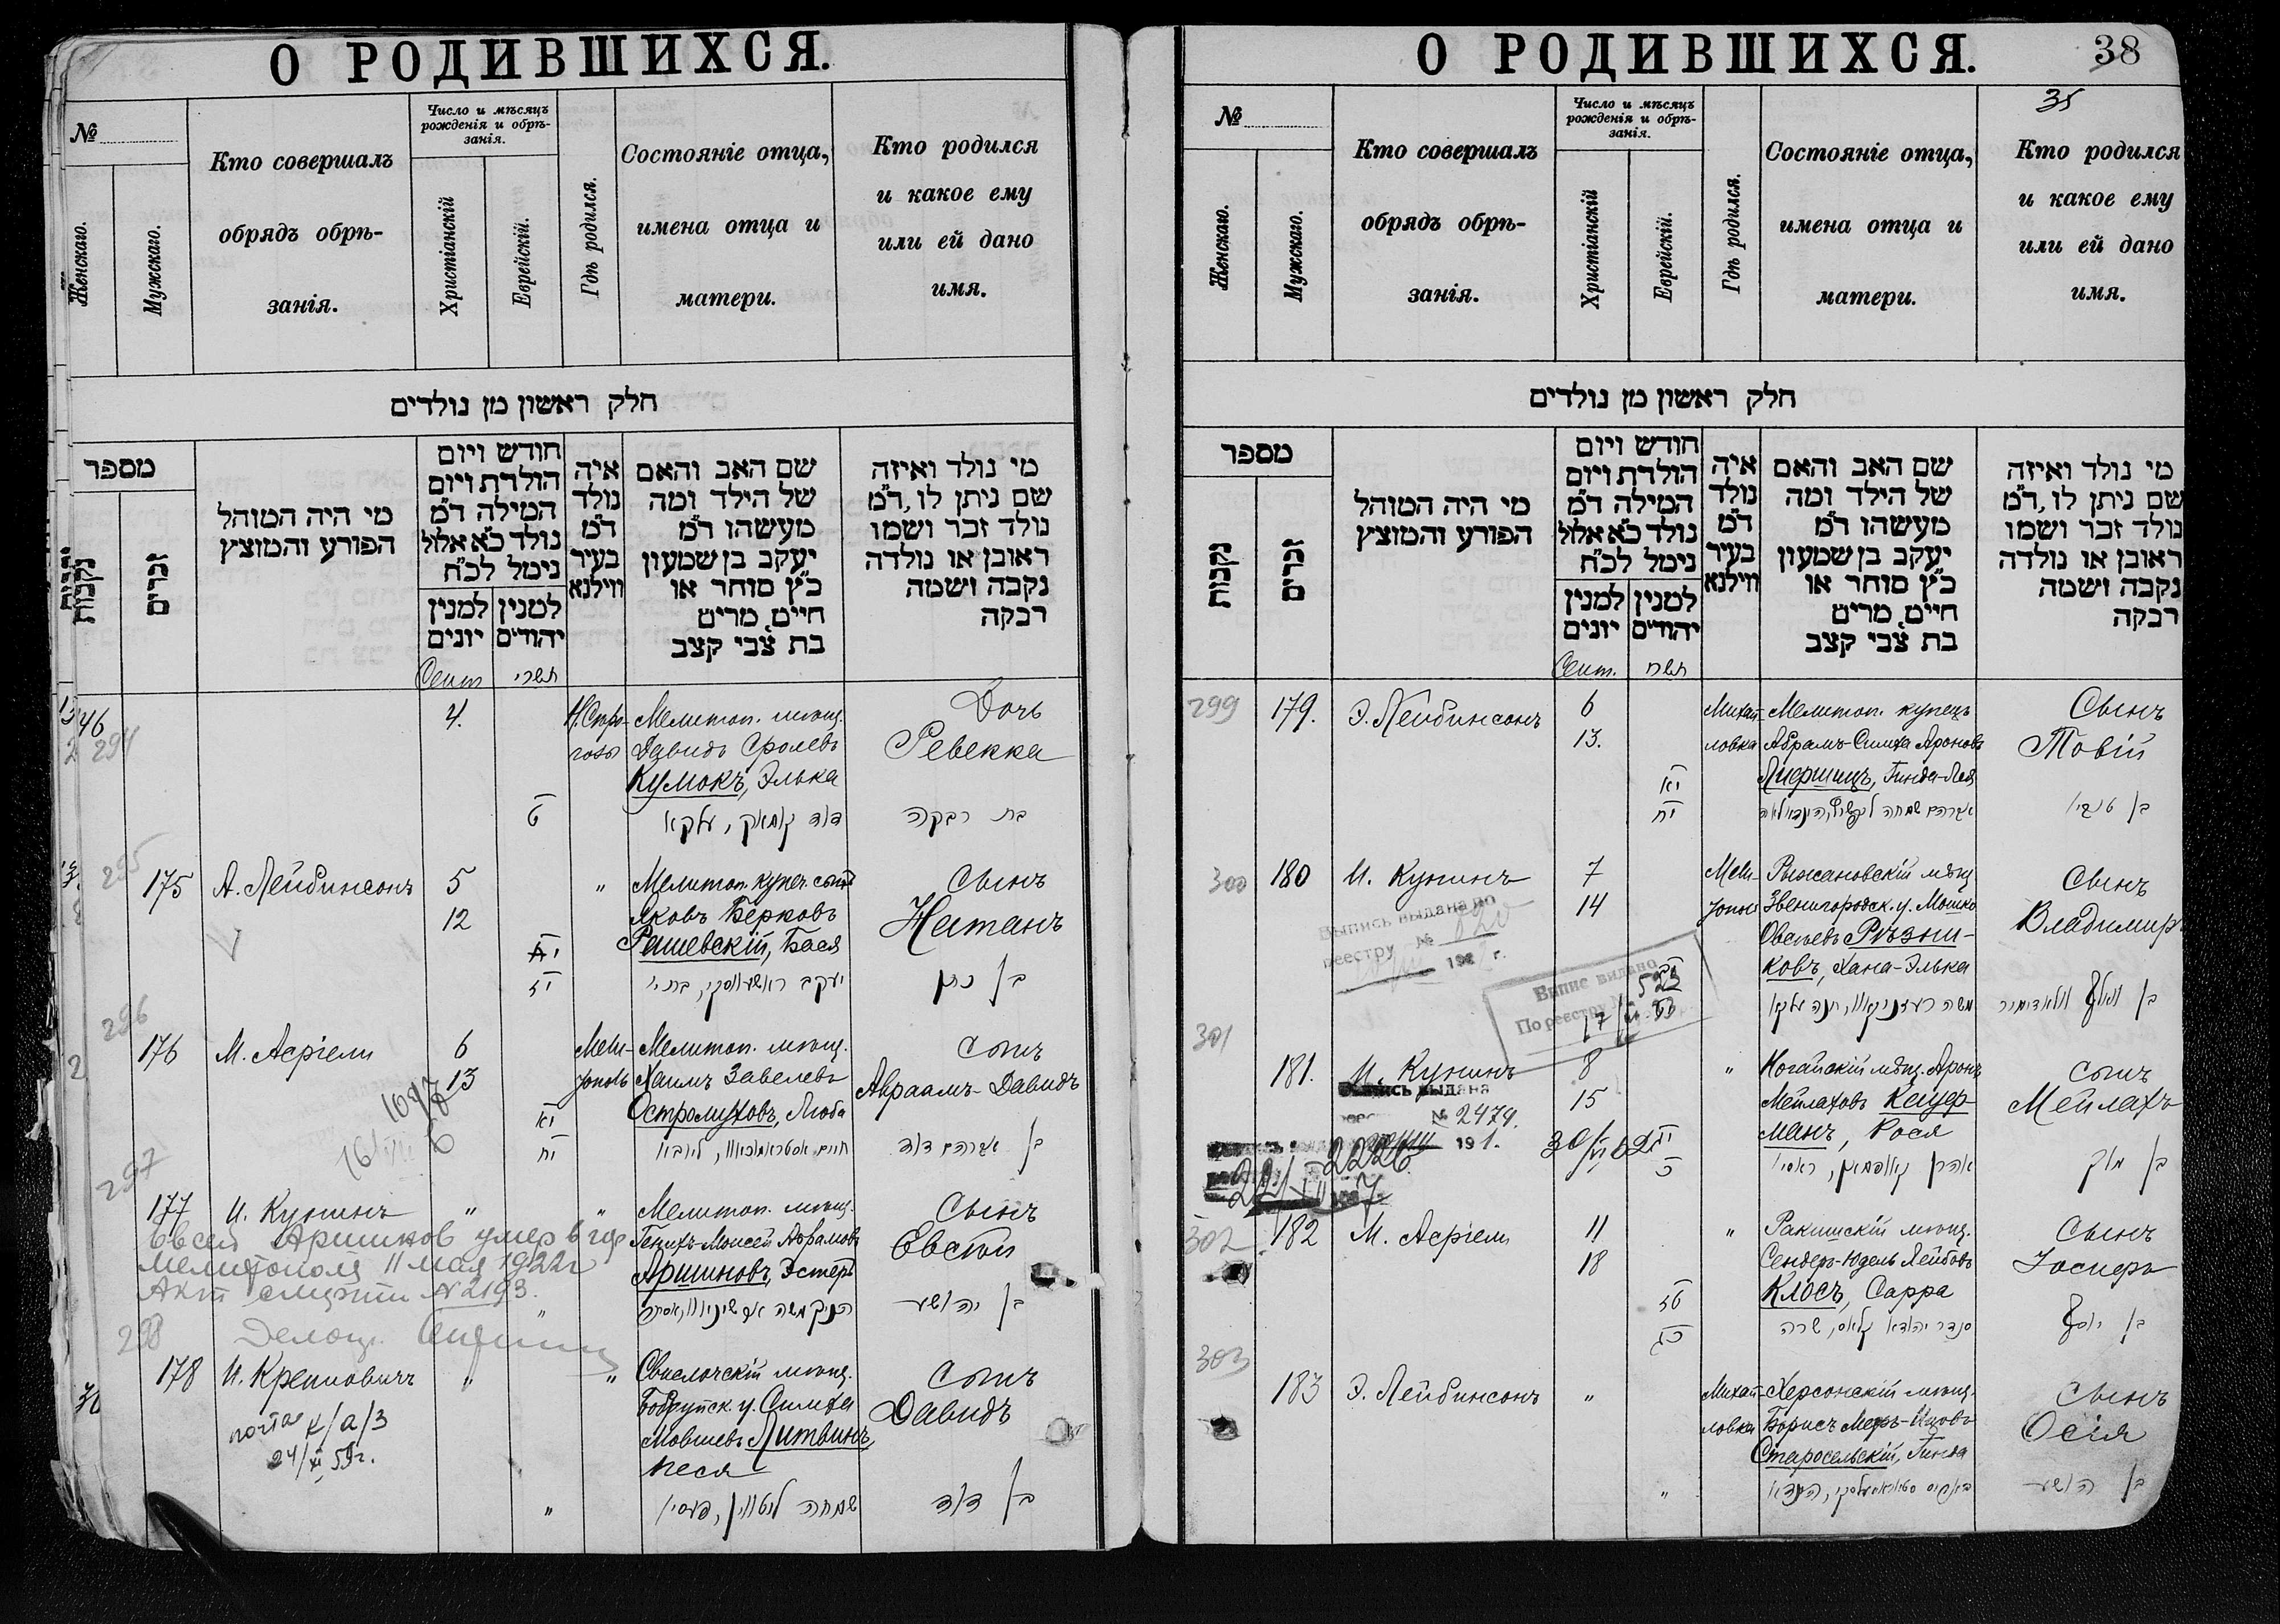 О РОДИВШИХСЯ.
№
Женскаго.
Мужскаго.
Кто совершалъ
обрядъ обрѣ-
занія.
Число и мѣсяцъ
рожденія и обрѣ-
занія.
Христіанскій
Еврейскій.
Гдѣ родился.
Состояніе отца,
имена отца и
матери.
Кто родился
и какое ему
или ей дано
имя.
חלק ראשון מן נולדים
מספר
נקבות
זכרים
מי היה המוהל
הפורע והמוצץ
חודש ויום
הולדת ויום
המילה ד״מ
נולד כ״א אלול
נימל לכ״ח
למנין
יונים
למנין
יהודים
איה
נולד
ד״מ
בעיר
ווילנא
שם האב והאם
של הילד ומה
מעשהו ד״מ
יעקב בן שמעון
כ״ץ סוחר או
חיים, מרים
בת צבי קצב
מי נולד ואיזה
שם ניתן לו, ד״מ
נולד זכר ושמו
ראובן או נולדה
נקבה ושמה
רבקה
Сент
תשרי
46
294
4.
Мелитоп. мѣщ.
Давидъ Сролевъ
Кумокъ, Элька
Дочь
Ревекка
ט
דוד קומאק, עלקא
בת רבקה
295
175
А. Лейбинсонъ
5
12
"
Мелитоп. купеч. сынъ
Яковъ Берковъ
Рашевскій, Бася
Сынъ
Натанъ
יז
בן נתן
296
176
М. Асріели
6
13
Мели-
тополь
Мелитоп. мѣщ.
Хаимъ Завелевъ
Остромуховъ, Люба
Сынъ
Авраамъ-Давидъ
יא
יח
בן אברהם דוד
297
177
И. Кунинъ
"
"
Мелитоп. мѣщ.
Генихъ-Моисей Абрамовъ
Аршиновъ, Эстеръ
Сынъ
Евсей
Евсей Аршинов умер в гор
Мелитополя 11 мая 1922 г
Акт смерти № 2193.
"
בן יהושע
298
178
И. Крейновичъ
"
"
Свислочскій мѣщ.
Бобруйск. у. Симха
Мовшевъ Литвинъ,
Песя
Сынъ
Давидъ
24/XI 59г.
"
שמחה ליטווין, פעסיא
בן דוד
О РОДИВШИХСЯ.
38
35
№
Женскаго.
Мужскаго.
Кто совершалъ
обрядъ обрѣ-
занія.
Число и мѣсяцъ
рожденія и обрѣ-
занія.
Христіанскій
Еврейскій.
Гдѣ родился.
Состояніе отца,
имена отца и
матери.
Кто родился
и какое ему
или ей дано
имя.
חלק ראשון מן נולדים
מספר
נקבות
זכרים
מי היה המוהל
הפורע והמוצץ
חודש ויום
הולדת ויום
המילה ד״מ
נולד כ״א אלול
נימל לכ״ח
למנין
יונים
למנין
יהודים
איה
נולד
ד״מ
בעיר
ווילנא
שם האב והאם
של הילד ומה
מעשהו ד״מ
יעקב בן שמעון
כ״ץ סוחר או
חיים, מרים
בת צבי קצב
מי נולד ואיזה
שם ניתן לו, ד״מ
נולד זכר ושמו
ראובן או נולדה
נקבה ושמה
רבקה
Сент.
299
179.
Э. Лейбинсонъ
6
13.
Михай-
ловка
Мелитоп. купецъ
Абрамъ-Симха Ароновъ
Лифшицъ, Гинда-Лея
Сынъ
Товій
יא
יח
בן טוביו
300
180
И. Кунинъ
7
14
Мели-
тополь
Рыжановскій мѣщ.
Звенигородск. у. Мошко
Овсѣевъ Рѣзни-
ковъ, Хана-Элька
Сынъ
Владимиръ
Выпись выдана по
реестру №
Випис видано
По реестру № 523
301
181.
И. Кунинъ
8
15
"
Ногайскій мѣщ. Аронъ
Мейлаховъ Кауф-
манъ, Рося
Сынъ
Мейлахъ
Выпись выдана
№ 2479.
191.
2226
302
182
М. Асріели
11
18
"
Ракишскій мѣщ.
Сендеръ-Юдель Лейбовъ
Клосъ, Сарра
Сынъ
Іосифъ
טז
כג
סנדר יהודא קלאס, שרה
בן יוסף
303
183
Э. Лейбинсонъ
"
Михай-
ловка
Херсонскій мѣщ.
Старосельскій, Гинда
Сынъ
Осія
"
בן הושע